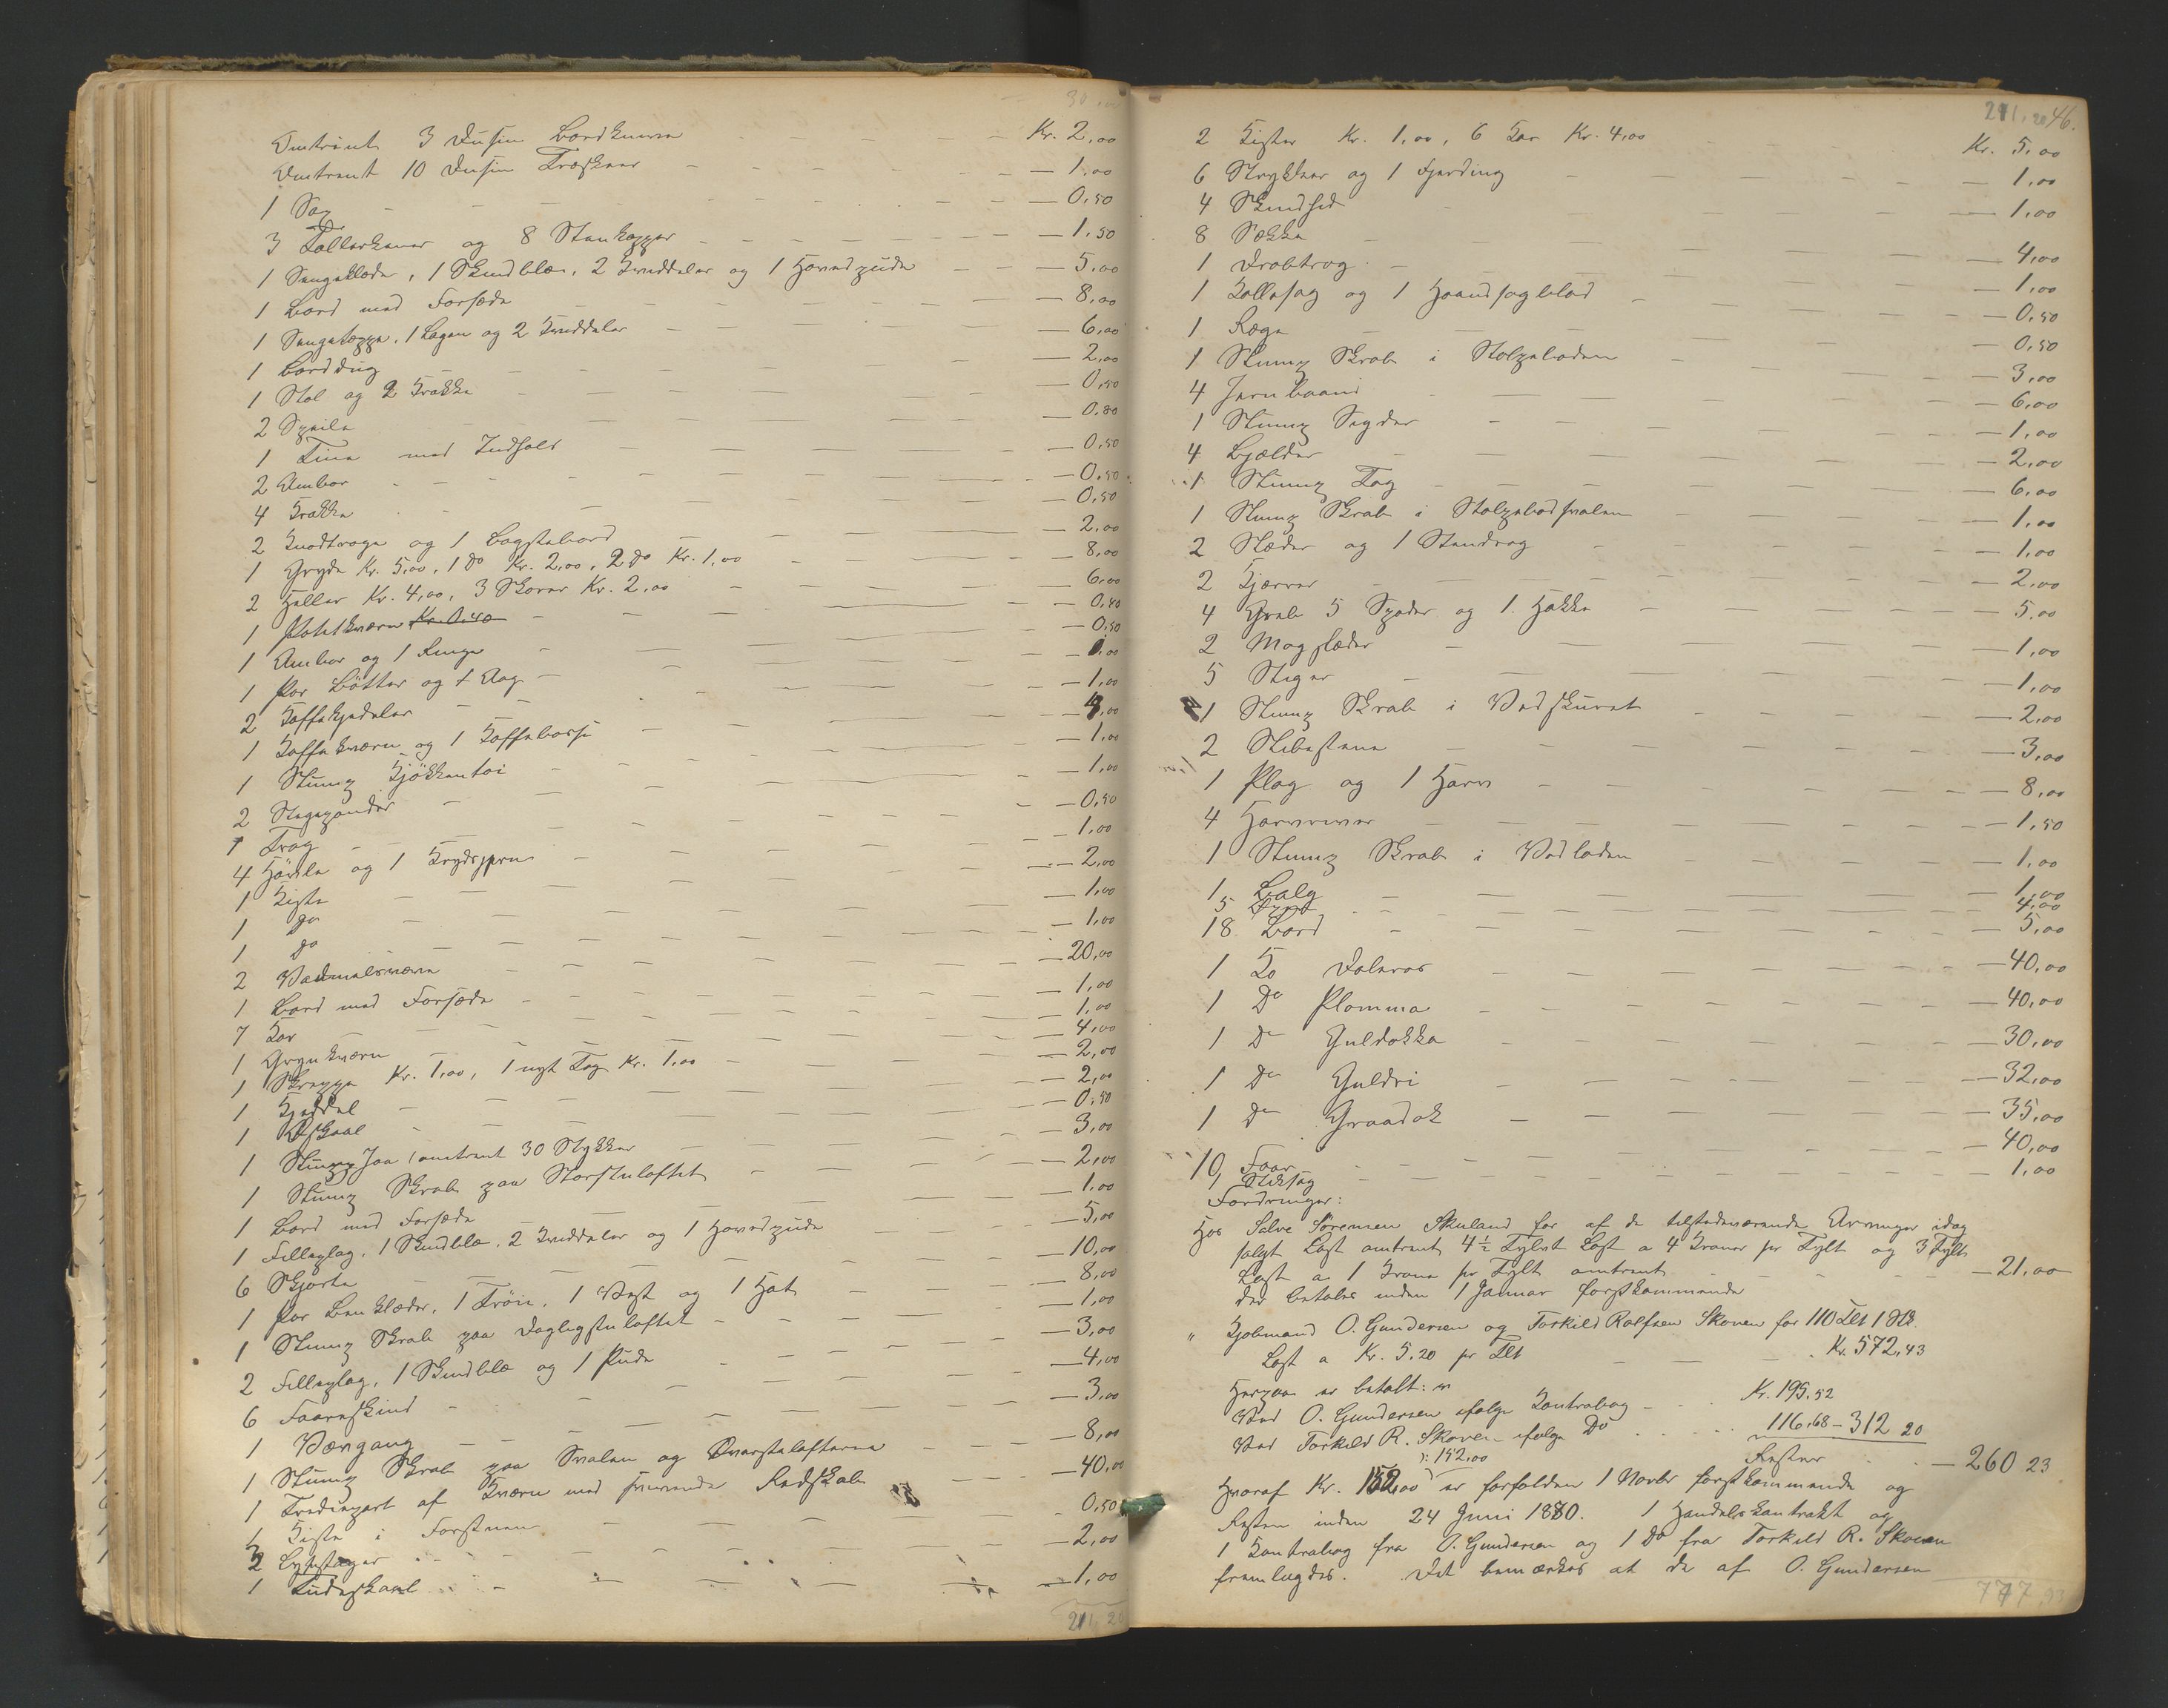 Omtrent 3 Dusin Bordknive — Kr. 2,00
Omtrent 10 Dusin Træskeer — 1,00
1 Sax — 0,50
3 Tallerkener og 8 Stenkopper — 1,50
1 Sengeklæde, 1 Skindblæ, 2 Knuddeler og 1 Hovedpude — 5,00
1 Bord med Forsæde — 8,00
1 Sengeteppe, 1 Lagen og 2 Knuddeler — 6,00
1 Borddug — 2,00
1 Stol og 2 Krakke — 0,50
2 Speile — 0,80
1 Tine med Indhold — 0,50
2 Ambar — 0,50
4 Krakke — 0,50
2 Knodtroge og 1 Bagstebord — 2,00
1 Gryde Kr. 5,00, 1 do Kr. 2,00, 2 do Kr. 1,00 — 8,00
2 Heller Kr. 4,00, 3 Skorer Kr. 2,00 — 6,00
1 Potetkværn Kr. 0,40 — 0,40
1 Ambar og 1 Ringe — 0,50
1 Par Bøtter og 1 Aag — 1,00
2 Kaffekjedeler — 1,00
1 Kaffekværn og 1 Kaffebøsse — 4,00
1 Stump Kjøkkentøi — 1,00
2 Stegepander — 1,00
1 Trog — 0,50
4 Høvle og 1 Krydsjern — 1,00
1 Kiste — 2,00
1 do — 1,00
1 do — 1,00
2 Vadmelsvæve — 20,00
1 Bord med Forsæde — 1,00
7 Kar — 1,00
1 Grynkværn — 4,00
1 Skreppe Kr. 1,00, 1 nyt Tog Kr. 1,00 — 2,00
1 Kjeddel — 2,00
1 Ølskaal — 0,50
1 Stump Jaa (omtrent 30 Stykker — 3,00
1 Stump Skrab paa Storstuloftet — 2,00
1 Bord med Forsæde — 1,00
1 Felleplag, 1 Skindblæ, 2 Knuddeler og 1 Hovedpude — 5,00
6 Skjorte — 10,00
1 Par Benklæder, 1 Trøie, 1 Vest og 1 Hat — 8,00
1 Stump Skrab paa Dagligstuloftet — 1,00
2 Felleplag, 1 Skindblæ og 1 Pude — 3,00
6 Faareskind — 4,00
1 Vævgang — 3,00
1 Stump Skrab paa Svalen og Øverstelofterne — 8,00
1 Trediepart af Kværn med henværende Redskab — 40,00
1 Kiste i Forstuen — 0,50
2 Lysstager — 2,00
1 Tudeskaal — 1,00
211,20
211,20 46.
2 Kister Kr. 1,00, 6 Kar Kr. 4,00 — Kr. 5,00
6 Strykkar og 1 Fjerding — 1,00
4 Skindfed — 1,00
8 Sække — 4,00
1 Drabtrog — 1,00
1 Kollesag og 1 Haandsagblad — 0,50
1 Læge — 0,50
1 Stump Skrab i Stolpeboden — 3,00
4 Jernbaand — 6,00
1 Stump Sigder — 1,00
4 Bjælder — 2,00
1 Stump Tog — 6,00
1 Stump Skrab i Stolpebodsvalen — 1,00
2 Slæder og 1 Stendrog — 1,00
2 Kjærrer — 2,00
4 Greb 5 Spader og 1 Hakke — 5,00
2 Mogslæder — 1,00
5 Stiger — 1,00
1 Stump Skrab i Vedskuret — 2,00
2 Slibestene — 3,00
1 Plog og 1 Harv — 8,00
4 Hammerer — 1,50
1 Stump Skrab i Vedladen — 1,00
1 Balg — 1,00
5 — 4,00
18 Bord — 5,00
1 Ko Dolaros — 40,00
1 Do Plomma — 40,00
1 Do Guldokka — 30,00
1 Do Guldri — 32,00
1 Do Graadok — 35,00
10 Faar — 40,00
1 Stiksag — 1,00
Fordringer:
Hos Salve Sørensen Skuland for af de tilstedeværende Arvinger idag
solgt Last omtrent 4 1/2 Tylvt Last a 4 Kroner pr Tylt og 3 Tylt
Last a 1 Krone pr Tylt omtrent — 21,00
der betales inden 1 Januar førstkommende
" Kjøbmand O. Gundersen og Torkild Rolfsen Skoven for 110 Tlt 1 Stk
Last a Kr. 5.20 pr Tlt — Kr. 572,43
Herpaa er betalt:
Ved O. Gundersen ifølge Kontrabog — Kr. 195.52
Ved Torkild R. Skoven ifølge Do 116,68 — 312 20
Rester — 260 23
): 152,00
Hvoraf Kr. 152,00 er forfalden 1 Novbr førstkommende og
Resten inden 24 Juni 1880. 1 Handelskontrakt og
1 Kontrabog fra O. Gundersen og 1 Do fra Torkild R. Skoven
fremlagdes. Det bemærkes at de af O. Gundersen